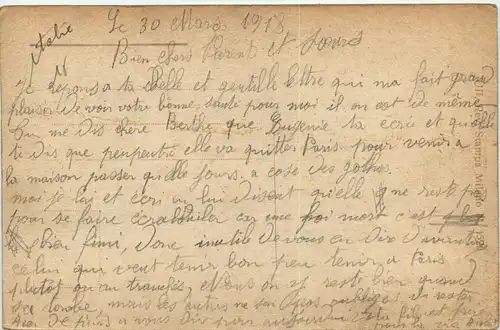 Italie
Le 30 Mars 1918
Bien chers Parent et Sœurs
Je repons a ta Belle et gentille lettre qui ma fait grand
plaisir de voir votre bonne santé pour moi il en est de même
Tu me dis chère Berthe que Eugenie ta ecrie et qu'elle
te dis que peupeutre elle va quitter Paris pour venir a
la maison passer qu'elle jours a cose des gothas.
moi je lui et ecri en lui disent qu'elle que reste pas
pour se faire car une foi mort c'est
bien fini, donc inutile de vous en dire d'avantage
celui qui veut tenir bon peu tenir a Paris
plutot qu'au tranchés, et nous on y reste bien quand
sa tombe, mais les autres ne son pas obligés d'y rester
rien de plus a vous dire pour aujourd'hui